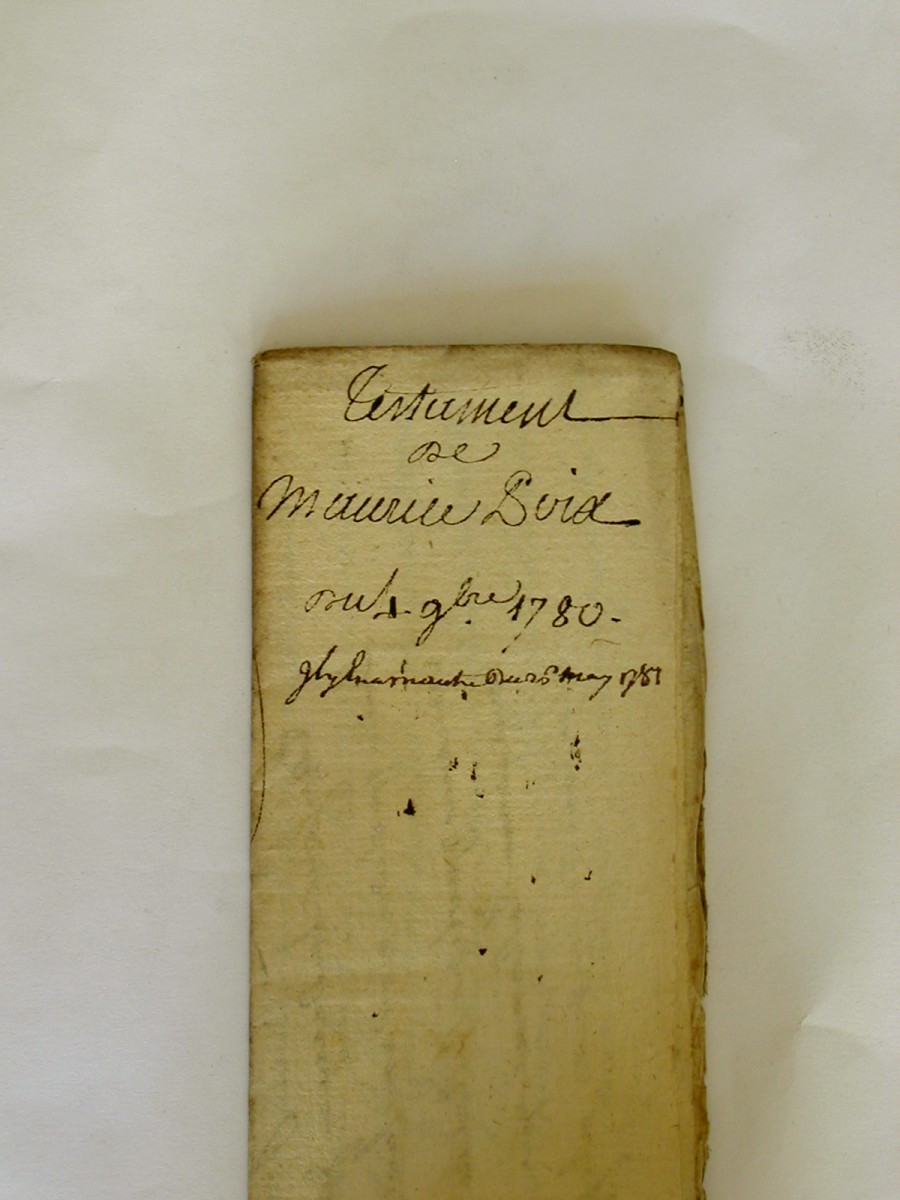 Testament
de
Maurice Poix
du 4 9bre 1780.
du 26 may 1781